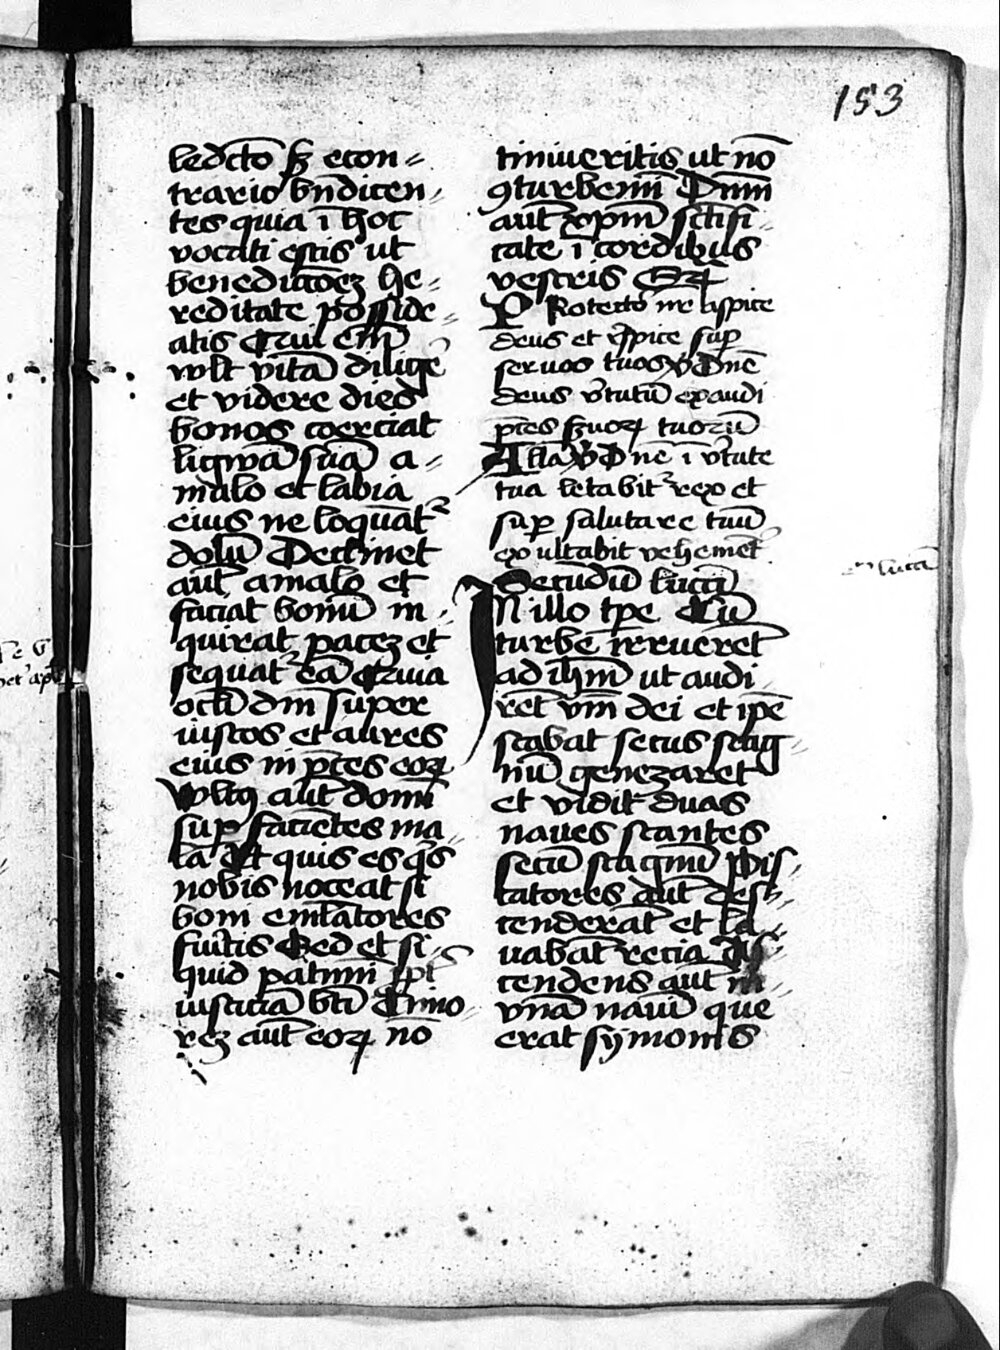 153
ledcto sz econ-
trario bn̄dicen-
tes quia ī hoc
vocati estis ut
benedictōez he-
reditate posside-
atis Qui em̄
vult vitā diligē
et videre dies
bonos coerciat
ligwā suā a-
malo et labia
eius ne loquāt²
dolū Declinet
aut̄ amalo et
faciat bonū in-
quirat pacez et
sequat² eā Quia
oc̄li dn̄i super
iustos et aures
eius in p̄ces eoꝝ
Vult9 aut̄ domī
sup faciētes ma-
la Et quis es qͥs
nobis noceat si
boni emlātores
fuītis Sed et si-
quid patimī ꝓpt̄
iusticiā bt̄i Timo-
rez aut̄ eoꝝ nō
timueritis ut nō
9turbemī Dn̄m
aut̄ xp̄m sc̄tifi-
cate ī cordibus
vestris
PRotector nr̄ aspice
deus et respice sup
seruos tuos V̄ Dn̄e
deus v̓tutū exaudi
p̄ces sʒuoꝝ tuorū
Alla V̄ Dn̄e ī v̓tute
tua letabit² rex et
sup salutare tuū
exultabit vehemet̄
Secūdū lucā
IN illo tpe Cū
turbē irruerēt
ad ih̄m ut audi-
rēt v̄m dei et ip̄e
stabat secus stag-
nū genezaret
et vidit duas
naues stantes
secū stagnū Pis-
catores aut̄ des-
cenderāt et la-
uabāt recia As-
cendens aut̄ in-
vnā nauī que
erat symonis
lucā